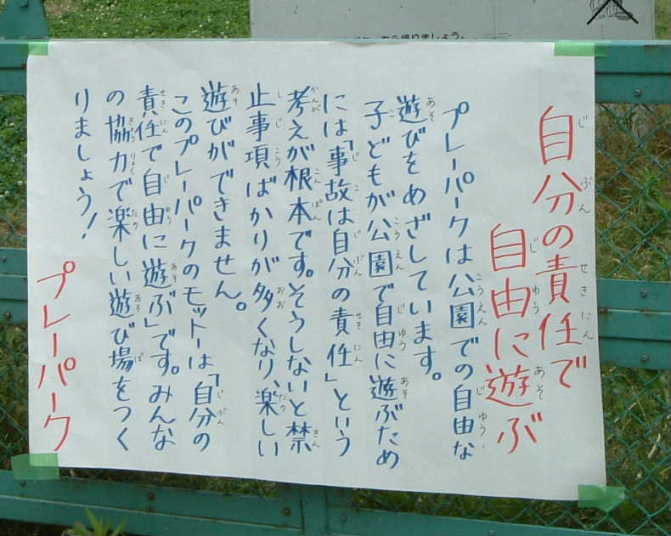 自分の責任で
自由に遊ぶ
プレーパークは公園での自由な
遊びをめざしています。
子どもが公園で自由に遊ぶため
には「事故は自分の責任」という
考えが根本です。そうしないと禁
止事項ばかりが多くなり、楽しい
遊びができません。
このプレーパークのモットーは「自分の
責任で自由に遊ぶ」です。みんな
の協力で楽しい遊び場をつく
りましょう!
プレーパーク